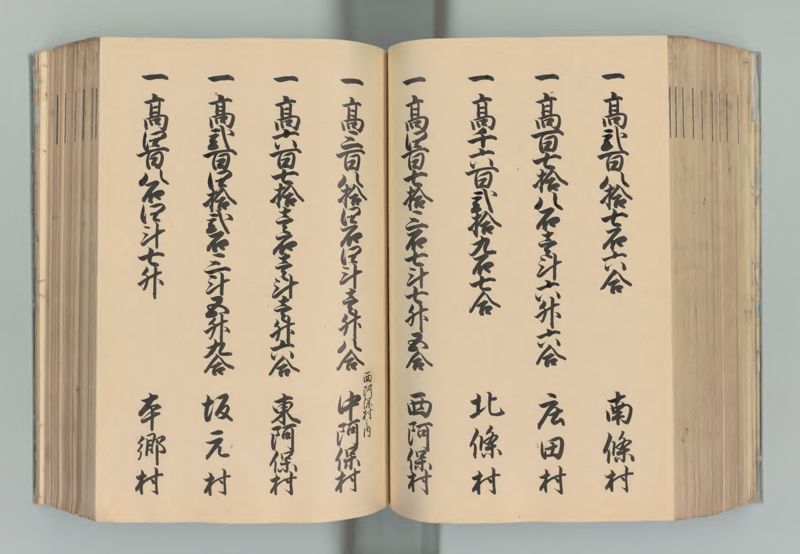 一高弐百八拾七石六合 南條村
一高百七拾八石壱斗六升六合 庄田村
一高千六百弐拾九石七合 北條村
一高四百七拾三石七斗七升五合 西阿保村
西阿保村之内
一高三百八拾四石四斗壱升八合 中阿保村
一高六百七拾壱石壱斗壱升六合 東阿保村
一高弐百四拾弐石三斗五升九合 坂元村
一高四百八石四斗七升 本郷村